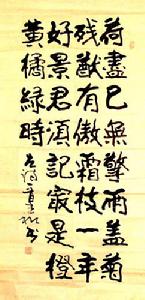 荷盡已無擎雨蓋菊
殘猶有傲霜枝一年
好景君須記最是橙
黃橘綠時